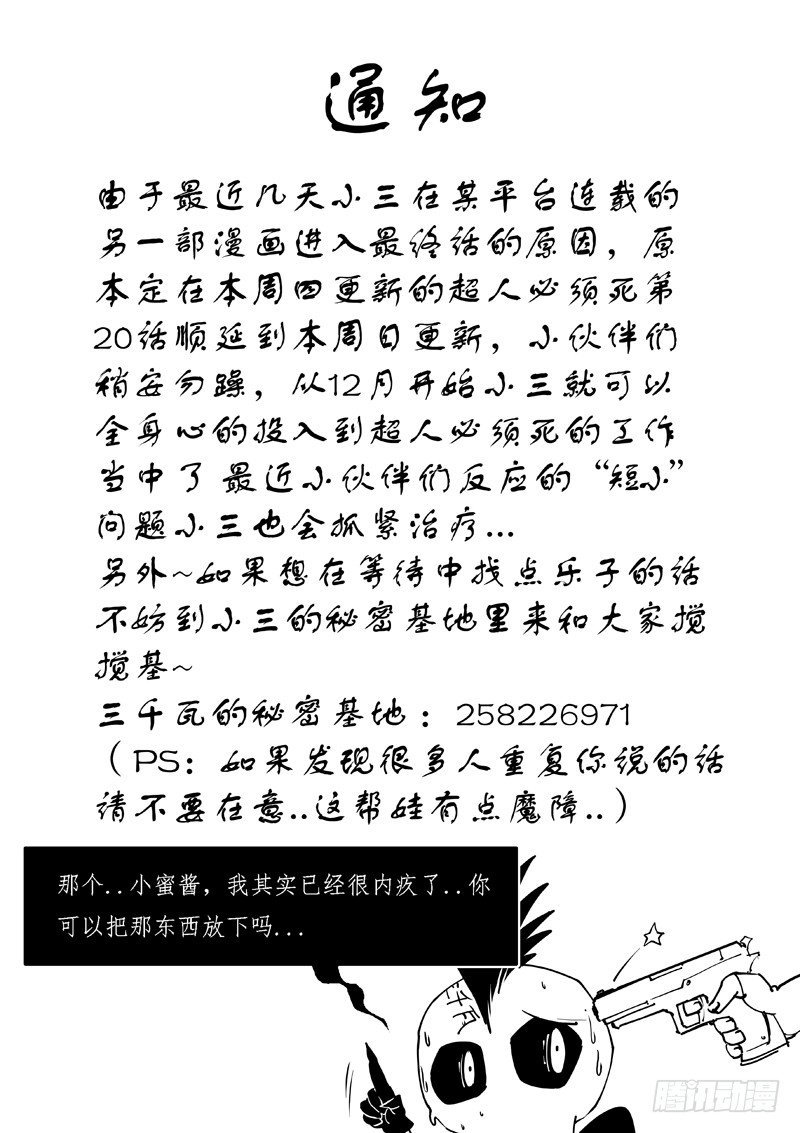 通知
由于最近几天小三在某平台连载的
另一部漫画进入最终话的原因，原
本定在本周四更新的超人必须死第
20话顺延到本周日更新，小伙伴们
稍安勿躁，从12月开始小三就可以
全身心的投入到超人必须死的工作
当中了 最近小伙伴们反应的“短小”
问题小三也会抓紧治疗...
另外~如果想在等待中找点乐子的话
不妨到小三的秘密基地里来和大家搅
搅基~
三千瓦的秘密基地：258226971
（PS：如果发现很多人重复你说的话
请不要在意..这帮娃有点魔障..）
那个..小蜜酱，我其实已经很内疚了..你
可以把那东西放下吗...
腾讯动漫